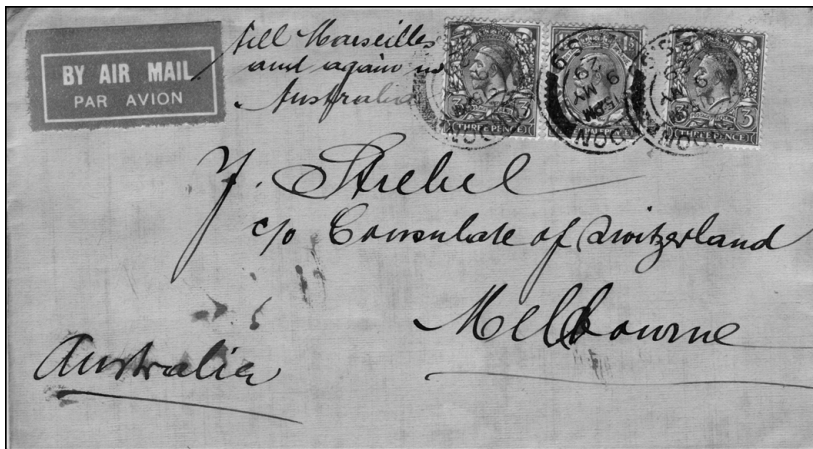 BY AIR MAIL
PAR AVION
till Marseilles
and again in
Australia
THREE PENCE
THREE PENCE
J. Strebel
c/o Consulate of Switzerland
Melbourne
Australia